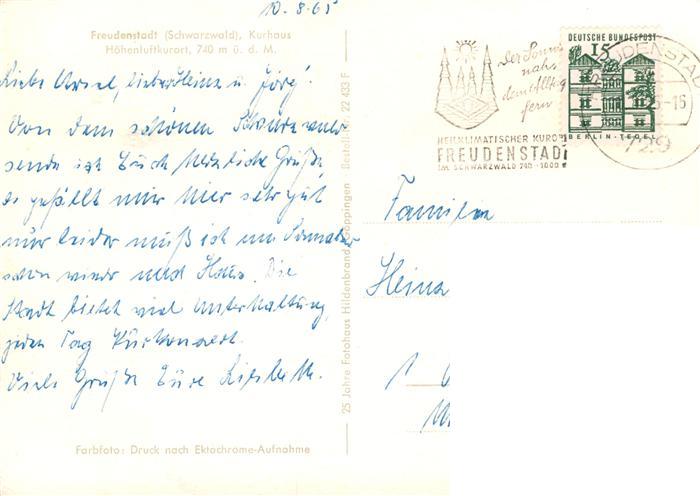 10.8.65
Freudenstadt (Schwarzwald), Kurhaus
Höhenluftkurort, 740 m ü. d. M.
Liebe Ursel, lieber Heinz u. Jörg!
Von dem schönen Schwarzwald
sende ich Euch herzliche Grüße
es gefällt mir hier sehr gut
nur leider muß ich am Sonnabend
schon wieder nach Haus. Die
Stadt bietet viel Unterhaltung,
jeden Tag Kurkonzert.
Viele Grüße Eure
Farbfoto: Druck nach Ektochrome-Aufnahme
25 Jahre Fotohaus Hildenbrand, Göppingen Bestell-Nr. 22 433 F
Der Sonne
nah,
dem Alltag
fern
HEILKLIMATISCHER KURORT
FREUDENSTADT
IM SCHWARZWALD 740-1000
DEUTSCHE BUNDESPOST
15
BERLIN-TEGEL
FREUDENSTADT
-16
729
Familien
Heinz